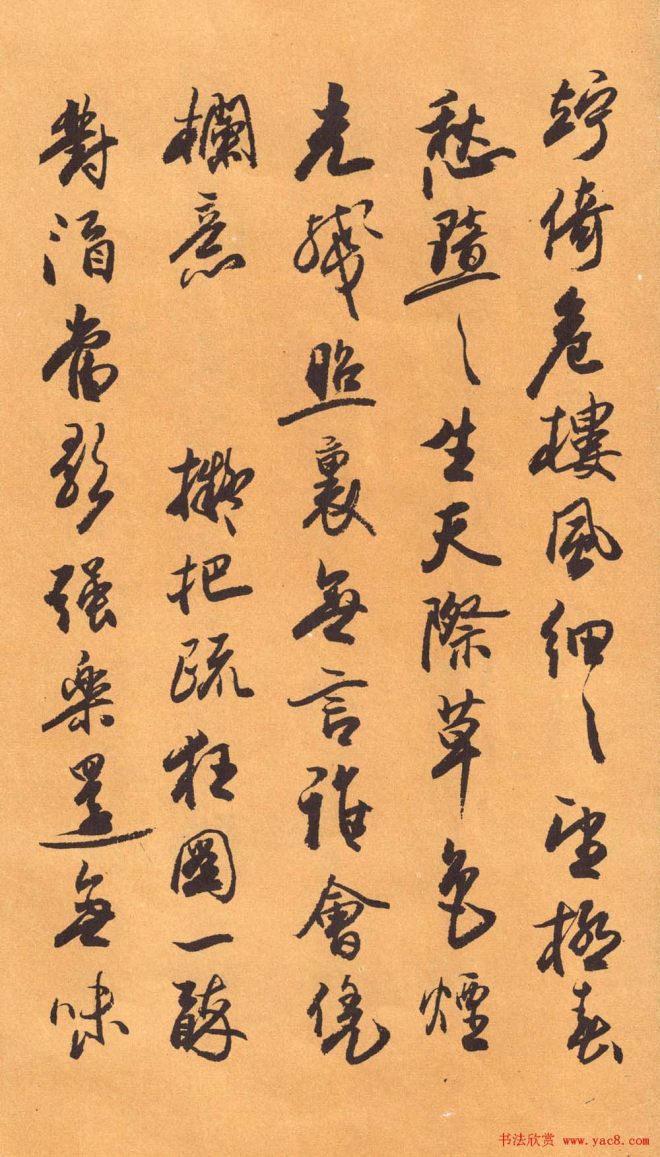 竚倚危樓風細〻望極春
愁黯〻生天際草色煙
光殘照裏無言誰會凭
欄意 擬把疏狂圖一醉
對酒當歌强樂還無味
书法欣赏 www.yac8.com